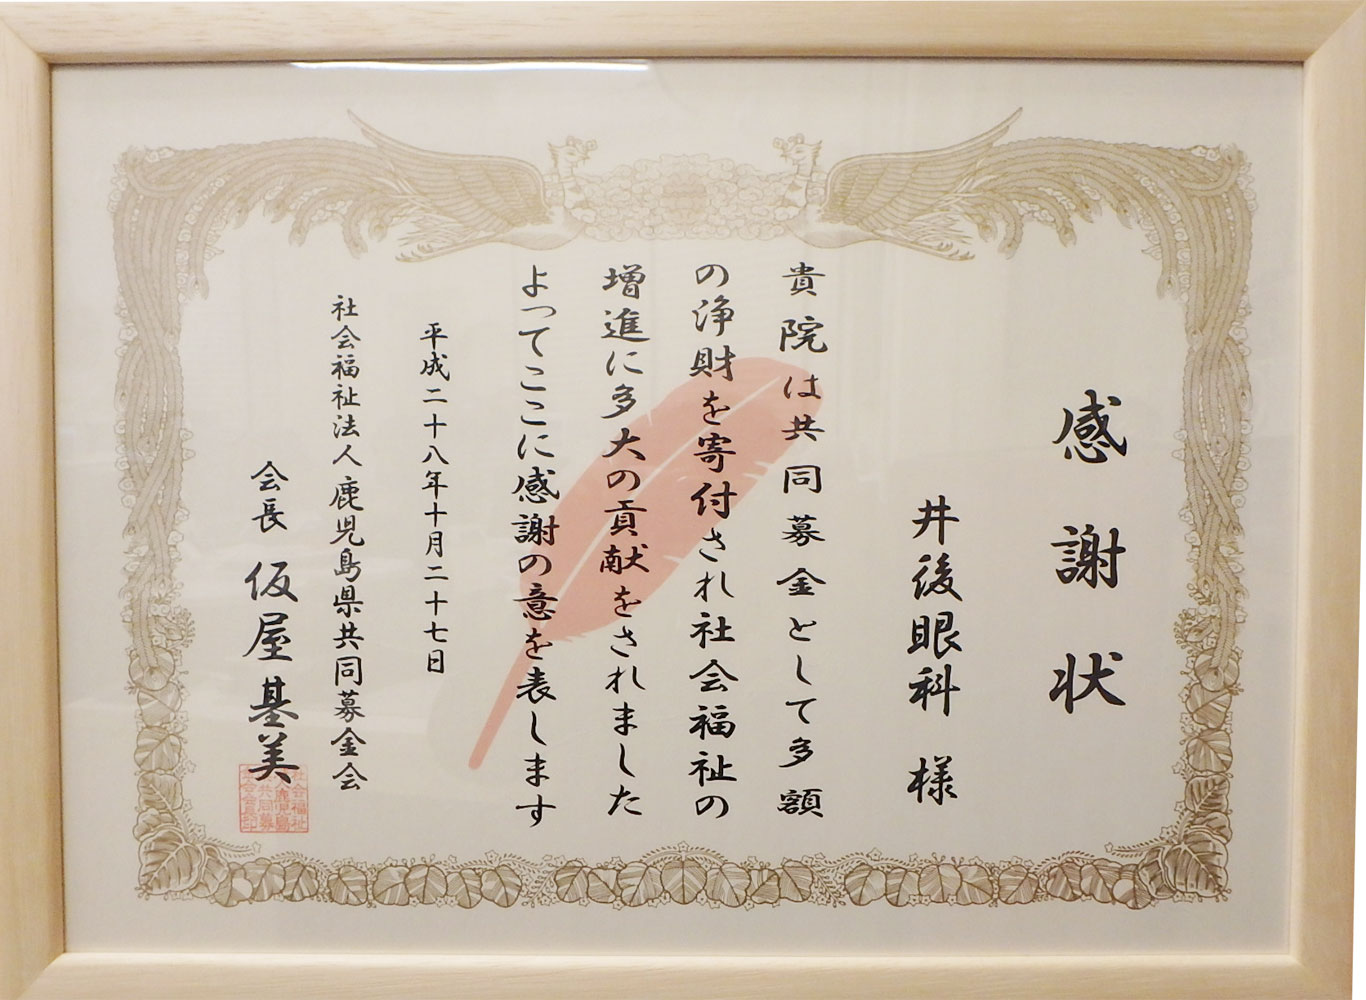 感謝状
井後眼科 様
貴院は共同募金として多額
の浄財を寄付され社会福祉の
増進に多大の貢献をされました
よってここに感謝の意を表します
平成二十八年十月二十七日
社会福祉法人鹿児島県共同募金会
会長 仮屋基美